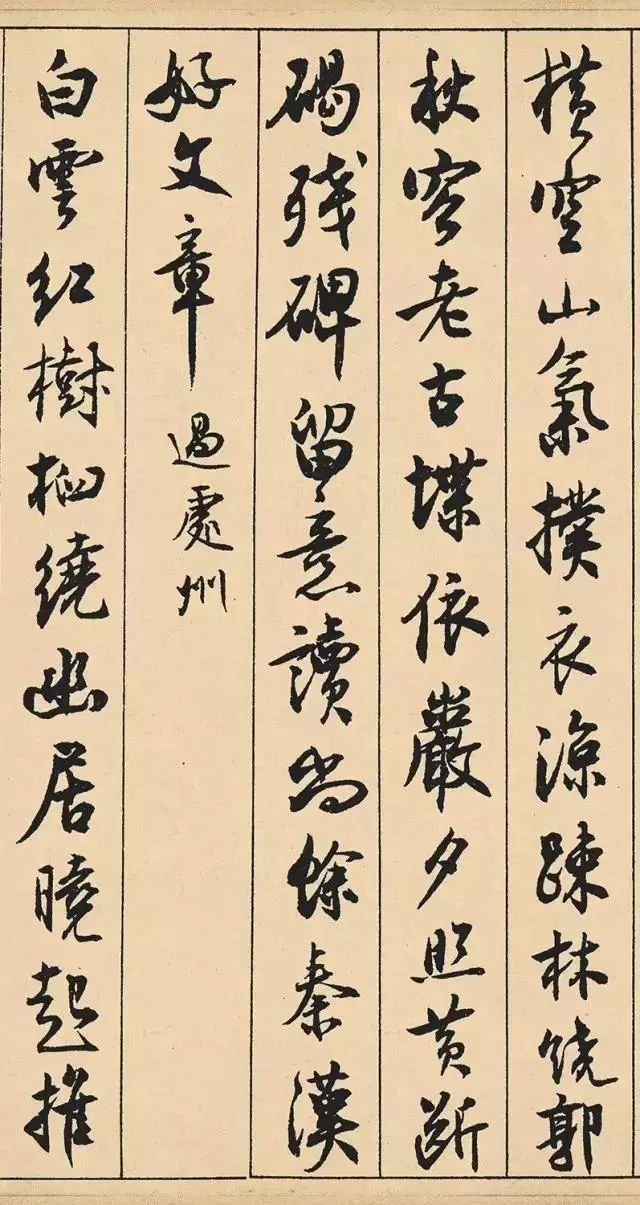 橫空山氣撲衣涼踈林繞郭
秋容老古堞依巖夕照黃斷
碣殘碑留意讀尚餘秦漢
好文章 過處州
白雲紅樹繞幽居曉起推